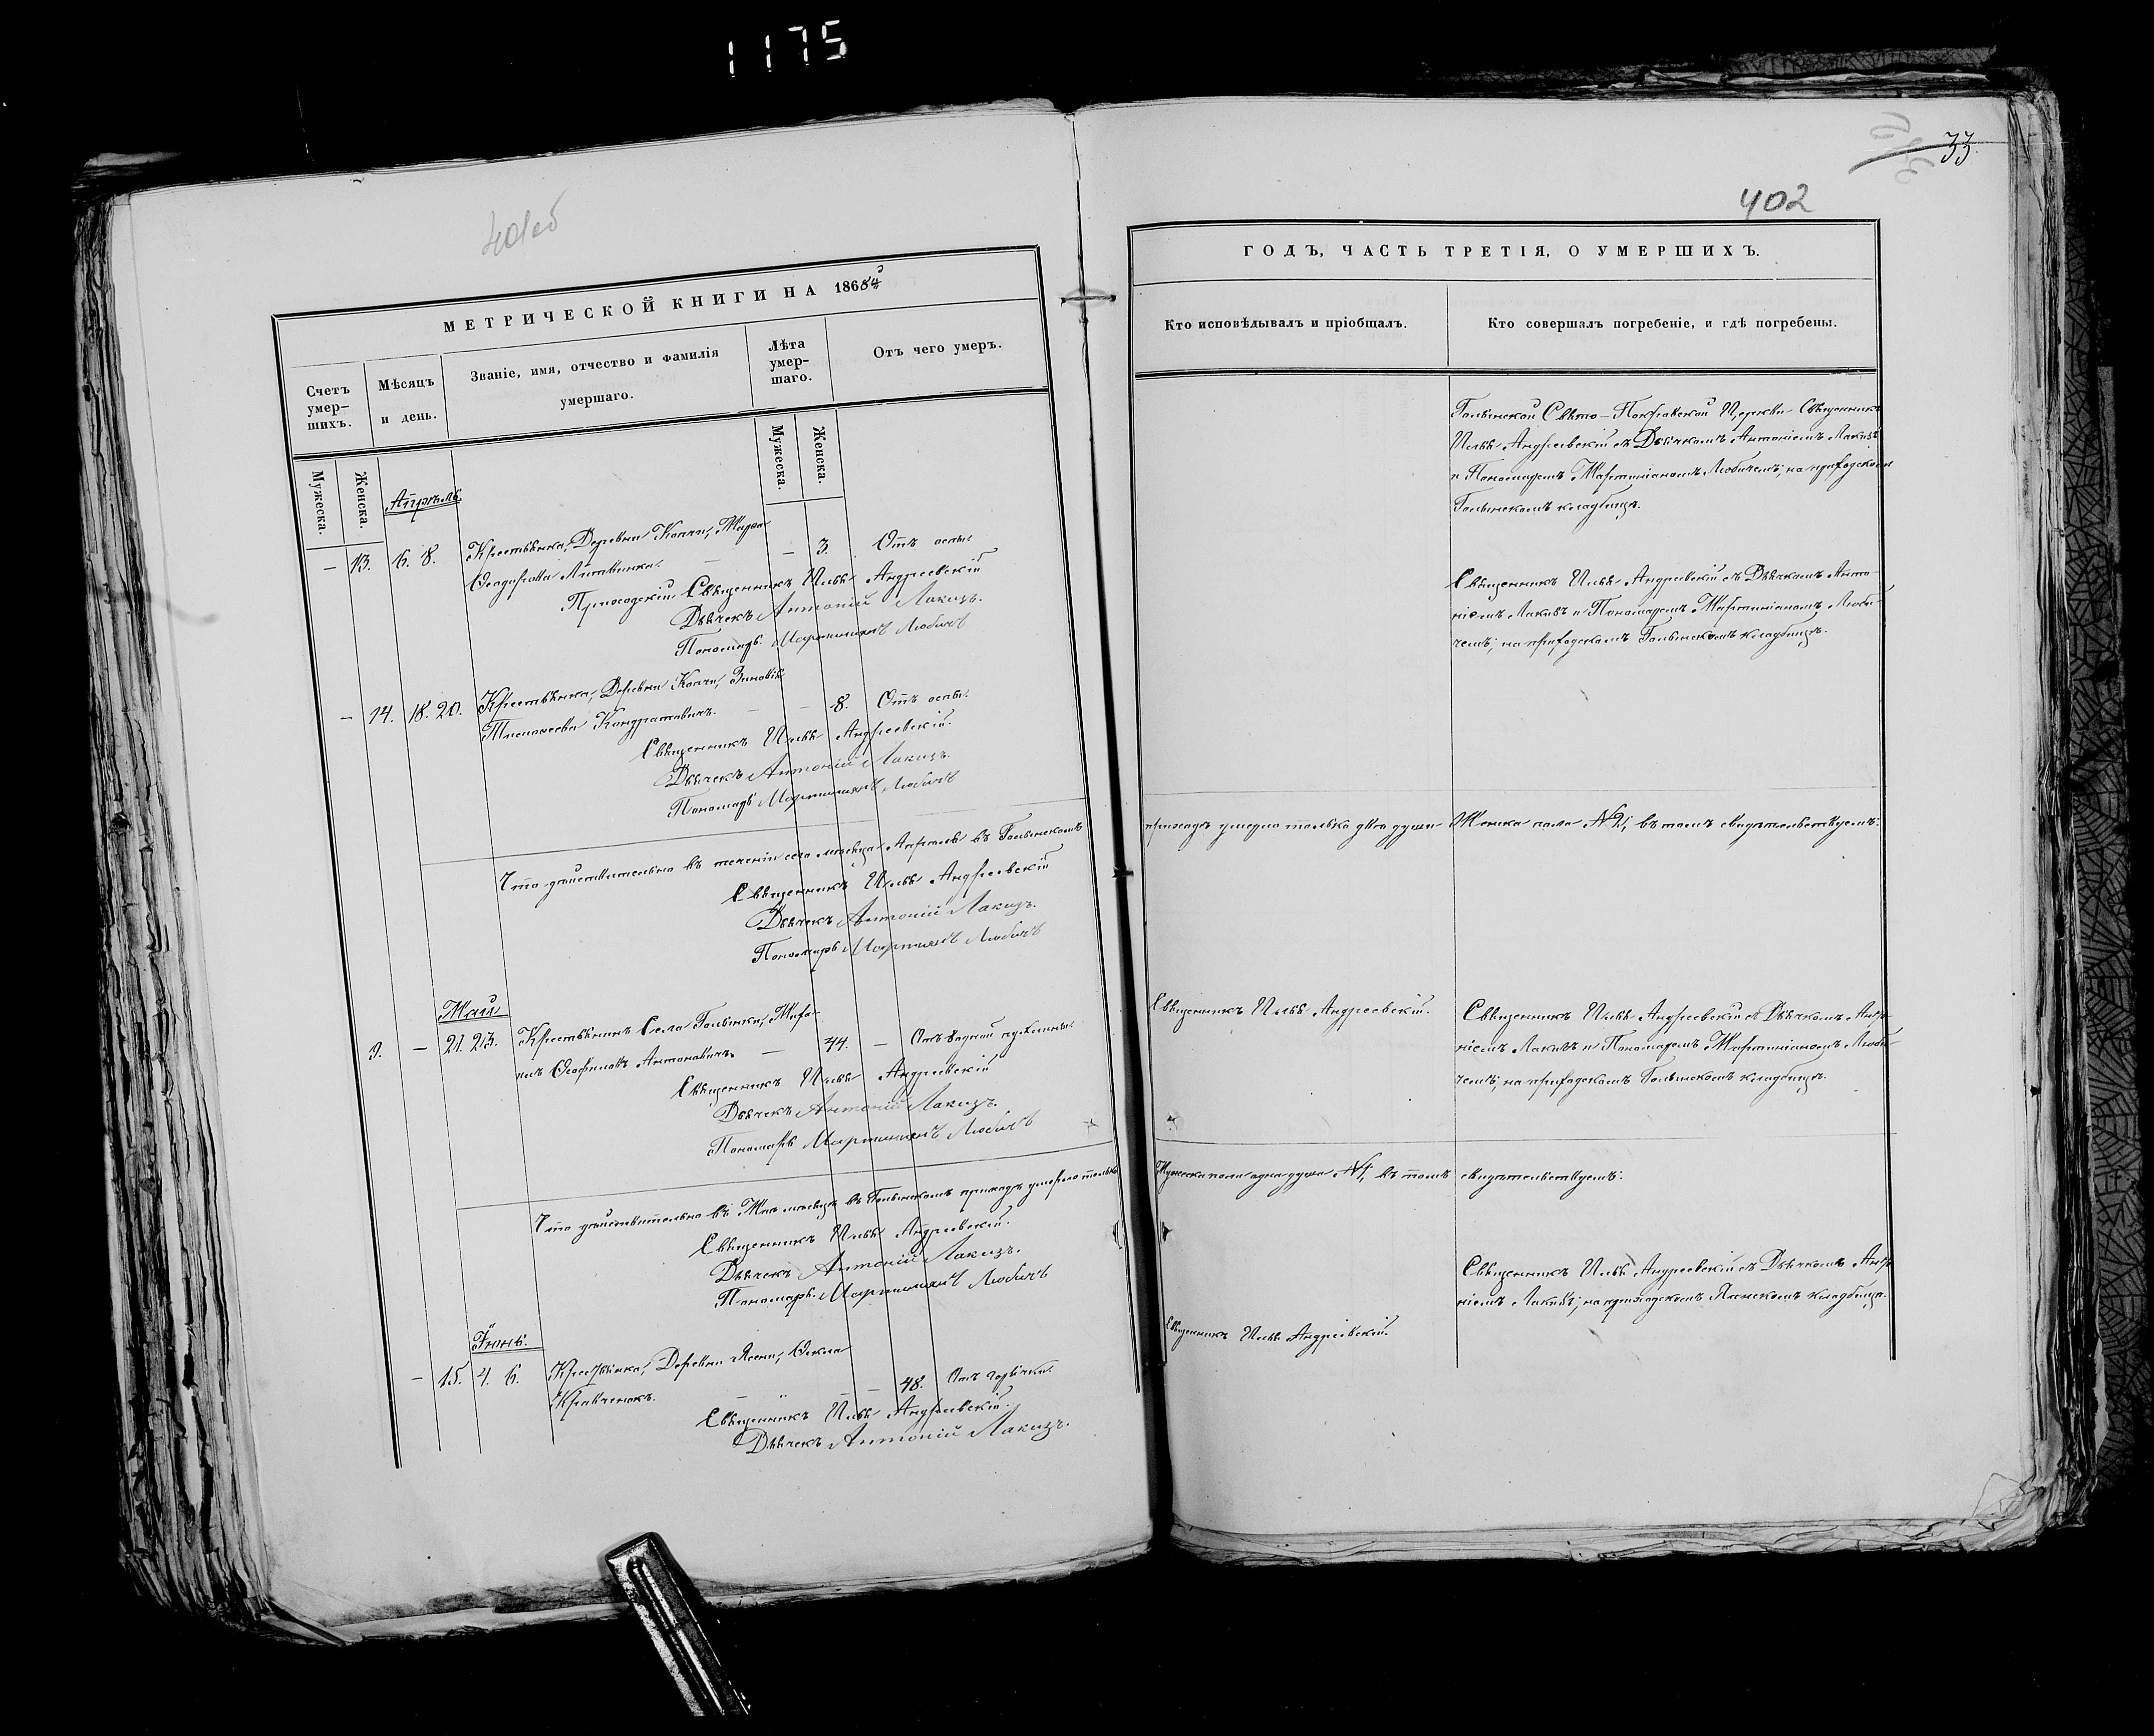 1175
401об
МЕТРИЧЕСКОЙ КНИГИ НА 186
Счетъ умер-шихъ.
Мѣсяцъ и день.
Званіе, имя, отчество и фамилія умершаго.
Лѣта умер-шаго.
Отъ чего умеръ.
Мужеска.
Женска.
Мужеска.
Женска.
Апрѣль.
– 13. 6. 8. Крестьянка, Деревни – 3. Отъ оспы.
Приходскій Священникъ Андреевскій
Дьячекъ Антоній Лакизъ.
Пономарь Мартиніанъ Любичъ
– 14. 18. 20. Крестьянка, Деревни
Кондратовичъ. – – 8. Отъ оспы.
Священникъ Андреевскій.
Дьячекъ Антоній Лакизъ.
Пономарь Мартиніанъ Любичъ
Что дѣйствительно въ теченіи сего мѣсяца Апрѣля въ Голынскомъ
Священникъ Андреевскій
Дьячекъ Антоній Лакизъ.
Пономарь Мартиніанъ Любичъ
Май
9. – 21. 23. Крестьянинъ Села Голынки,
Антоновичъ. – 44. – Отъ
Священникъ Андреевскій
Дьячекъ Антоній Лакизъ.
Пономарь Мартиніанъ Любичъ
Что дѣйствительно въ Маѣ мѣсяцѣ въ Голынскомъ приходѣ умерло только
Священникъ Андреевскій.
Дьячекъ Антоній Лакизъ.
Пономарь Мартиніанъ Любичъ
Іюнь.
– 15. 4. 6. Крестьянка, Деревни Ясени, Ѳекла
Кравченокъ. – – – 48. Отъ горячки.
Священникъ Андреевскій.
Дьячекъ Антоній Лакизъ.
33
402
ГОДЪ, ЧАСТЬ ТРЕТІЯ, О УМЕРШИХЪ.
Кто исповѣдывалъ и пріобщалъ.
Кто совершалъ погребеніе, и гдѣ погребены.
Голынской Свято-Покровской Церкви Священникъ
Андреевскій съ Дьячкомъ Антоніемъ
и Пономаремъ Мартиніаномъ Любичемъ; на приходскомъ
Голынскомъ кладбищѣ.
Священникъ Андреевскій съ Дьячкомъ Анто-
ніемъ и Пономаремъ Мартиніаномъ Люби-
чемъ; на приходскомъ Голынскомъ кладбищѣ.
приходѣ умерло только двѣ души Женска пола № 2, въ томъ свидѣтельствуемъ:
Священникъ Андреевскій.
Священникъ Андреевскій съ Дьячкомъ Анто-
ніемъ и Пономаремъ Мартиніаномъ Люби-
чемъ; на приходскомъ Голынскомъ кладбищѣ.
Мужеска пола одна душа № 1, въ томъ свидѣтельствуемъ:
Священникъ Андреевскій съ Дьячкомъ Анто-
ніемъ на приходскомъ кладбищѣ.
Священникъ Андреевскій.